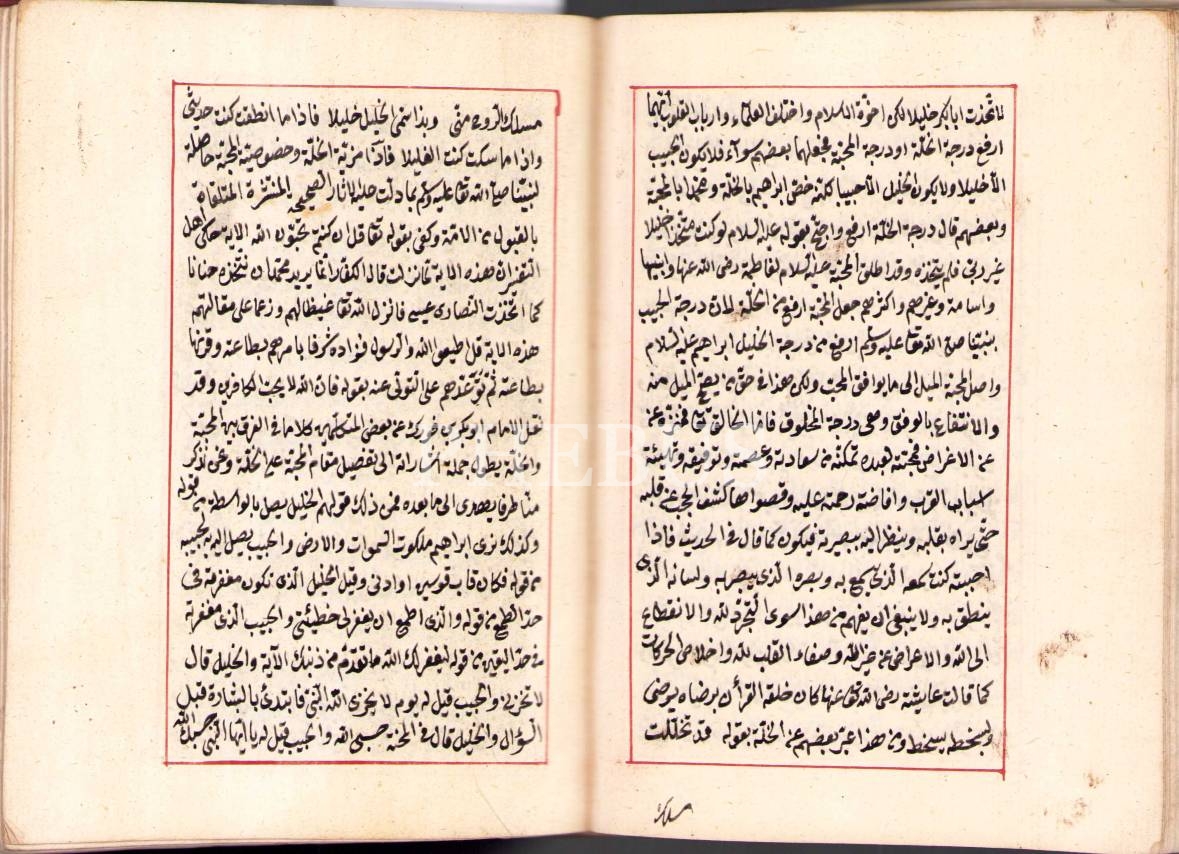 لاتخذت ابابكر خليلا لكن اخوة الاسلام واختلف العلماء وارباب القلوب ايهما
ارفع درجة الخلة او درجة المحبة فجعلهما بعضهم سوآء فلا يكون الحبيب
الا خليلا ولا يكون الخليل الا حبيبا لكنه خص ابراهيم بالخلة ومحمدا بالمحبة
وبعضهم قال درجة الخلة ارفع واحتج بقوله عليه السلام لو كنت متخذا خليلا
غير ربى فلم يتخذه وقد اطلق المحبة عليه السلام لفاطمة رضى الله عنها وابنيها
واسامة وغيرهم واكثرهم جعل المحبة ارفع من الخلة لان درجة الحبيب
نبينا صلى الله تعا عليه وسلم ارفع من درجة الخليل ابراهيم عليه السلام
واصل المحبة الميل الى ما يوافق المحب ولكن هذا فى حق من يصح الميل منه
والانتفاع بالوفق وهى درجة المخلوق فاما الخالق تعا فمنزه عن
عن الاغراض فمحبته لعبده تمكنه من سعادته وعصمته وتوفيقه وتهيئة
اسباب القرب وافاضة رحمته عليه وقصواها كشف الحجب عن قلبه
حتى يراه بقلبه وينظر اليه ببصيرته فيكون كما قال فى الحديث فاذا
احببته كنت سمعه الذى يسمع به وبصره الذى يبصر به ولسانه الذى
ينطق به ولا ينبغى ان يفهم من هذا سوى التجرد لله والانقطاع
الى الله والاعراض عن غير الله وصفاء القلب لله واخلاص الحركات
كما قالت عايشة رضى الله تعا عنها كان خلقه القرأن برضاه يرضى
وبسخطه يسخط ومن هذا عبر بعضهم عن الخلة بقوله قد تخللت
مسلك
مسلك الروح منى وبذا سمى الخليل خليلا فاذا ما انطقت كنت حديثى
واذا ما سكت كنت الغليلا فاذا مزية الخلة وخصوصية المحبة حاصلة
لنبينا صلى الله تعا عليه وسلم بما دلت عليه الاثار الصحيحه المنتشرة المتلقاة
بالقبول من الامة وكفى بقوله تعا قل ان كنتم تحبون الله الاية حكى اهل
التفسير ان هذه الاية لما نزلت قال الكفار انما يريد محمد ان نتخذه حنانا
كما اتخذت النصارى عيسى فانزل الله تعا غيظا لهم ورغما على مقالتهم
هذه الاية قل اطيعوا الله والرسول فزاده شرفا بامرهم بطاعته وقرنها
بطاعته ثم توعدهم على التولى عنه بقوله فان الله لا يحب الكافرين وقد
نقل الامام ابو بكر بن فورك عن بعض المتكلمين كلاما فى الفرق بين المحبة
والخلة يطول جملة اشاراته الى تفضيل مقام المحبة على الخلة ونحن نذكر
منه طرفا يهدى الى ما بعده فمن ذلك قولهم الخليل يصل بالواسطة من قوله
وكذلك نرى ابراهيم ملكوت السموات والارض والحبيب يصل اليه لحبيبه
من قوله فكان قاب قوسين او ادنى وقيل الخليل الذى تكون مغفرته فى
حد الطمع من قوله والذى اطمع ان يغفر لى خطيئتى والحبيب الذى مغفرته
فى حد اليقين من قوله ليغفر لك الله ما تقدم من ذنبك الآية والخليل قال
لا تخزنى والحبيب قيل له يوم لا يخزى الله النبى فابتدئ بالبشارة قبل
السؤال والخليل قال فى المحنة حسبى الله والحبيب قيل له يا ايها النبى حسبك الله